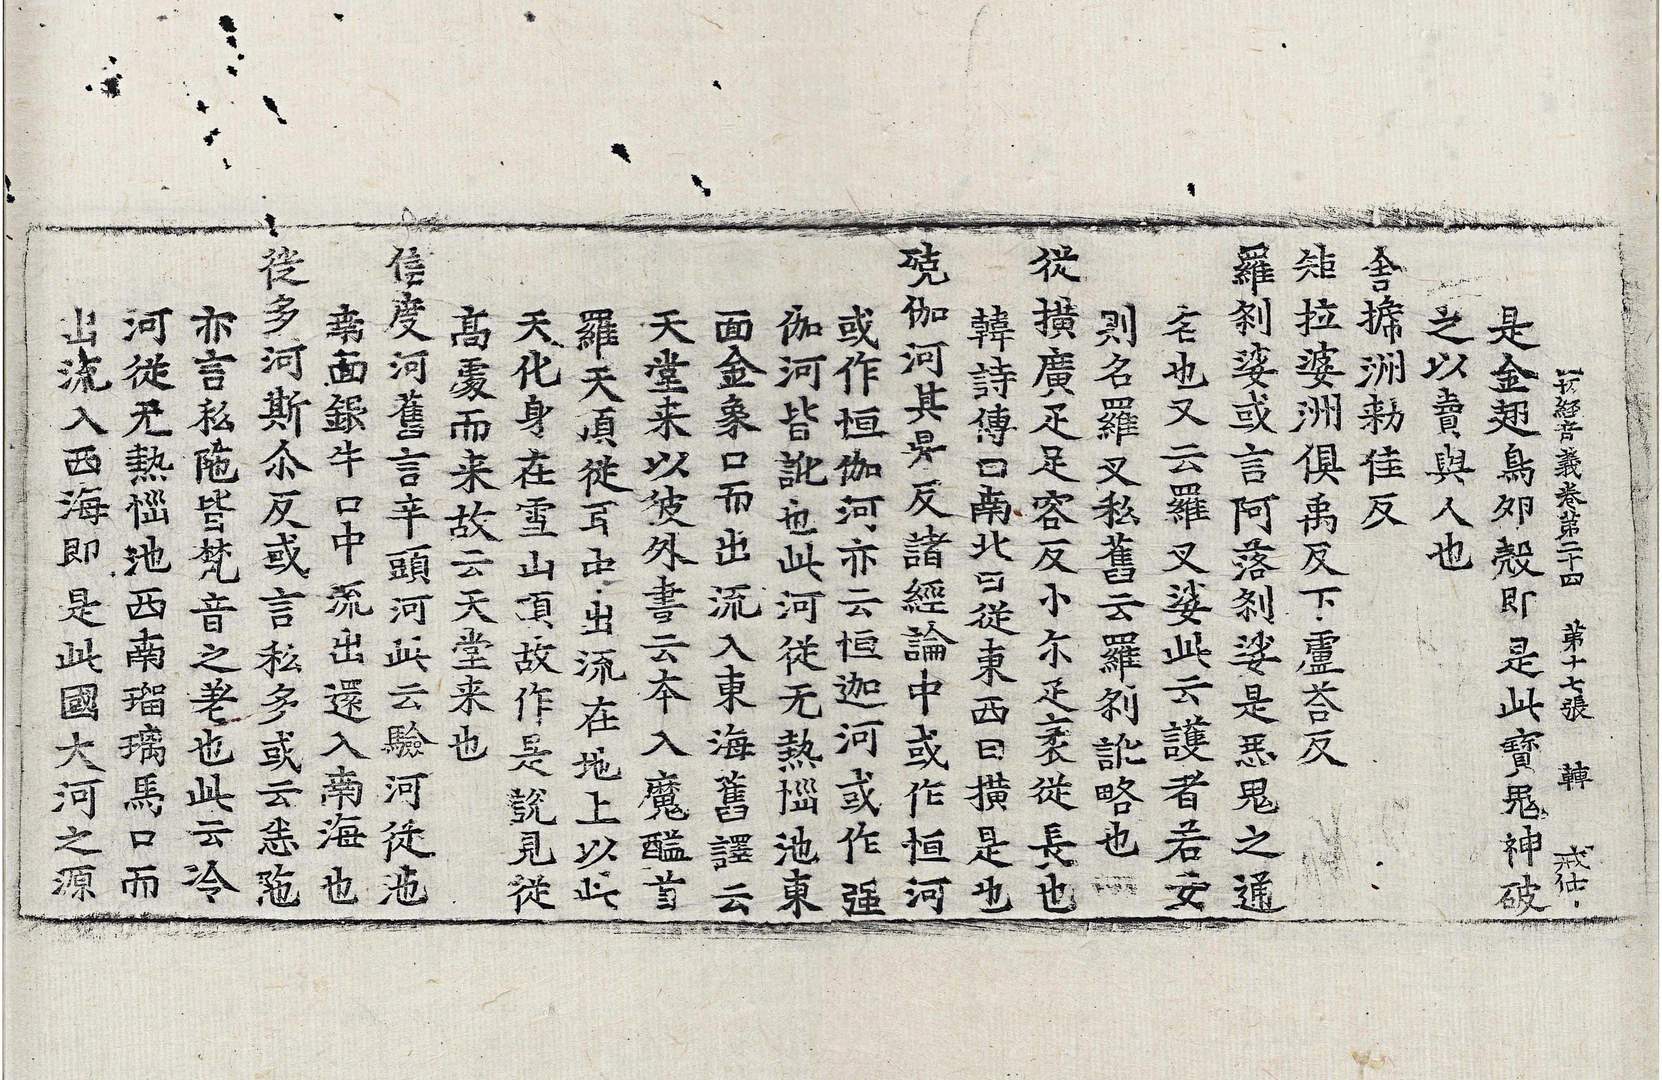 一切經音義卷第二十四 第十七張 轉
是金翅鳥夘殼即是此寶鬼神破
之以賣與人也
舍擄洲勑佳反
矩拉婆洲俱禹反下盧荅反
羅剎娑或言阿落剎娑是惡鬼之通
名也又云羅叉娑此云護者若女
則名羅叉私舊云羅剎訛略也
從擴廣疋足容反小尓疋袤從長也
韓詩傳曰南北曰從東西曰擴是也
殑伽河其昇反諸經論中或作恒河
或作恒伽河亦云恒迦河或作强
伽河皆訛也此河從无熱惱池東
面金象口而出流入東海舊譯云
天堂来以彼外書云本入魔醯首
羅天頂從耳中出流在地上以此
天化身在雪山頂故作是說見從
髙處而来故云天堂来也
信度河舊言辛頭河此云驗河從池
南面銀牛口中流出還入南海也
徙多河斯尒反或言私多或云悉陁
亦言私陁皆梵音之差也此云冷
河從无熱惱池西南瑠璃馬口而
出流入西海即是此國大河之源